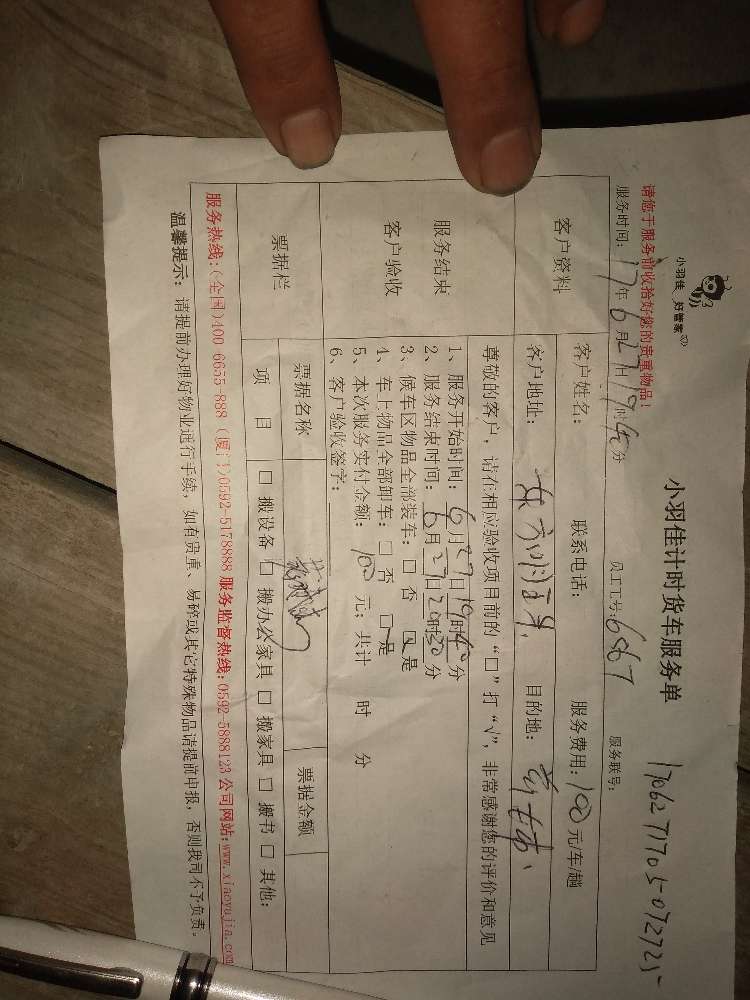 小羽佳 好管家
小羽佳计时货车服务单
1706271705-072725
请您于服务前收拾好您的贵重物品!
服务时间: 17年6月27日19时40分 员工工号: 6867 服务联号:
客户资料
客户姓名: 联系电话: 服务费用: 100元/车/趟
客户地址: 目的地:
服务结束
客户验收
尊敬的客户,请在相应验收项目前的“□”打“√”,非常感谢您的评价和意见
1、服务开始时间: 6月27日19时40分
2、服务结束时间: 6月27日20时30分
3、候车区物品全部装车: □ 否 □ 是
4、车上物品全部卸车: □ 否 □ 是
5、本次服务实付金额: 100 元; 共计 时 分
6、客户验收签字:
票据栏
票据名称 票据金额
项 目 □ 搬设备 □ 搬办公家具 □ 搬家具 □ 搬书 □ 其他:
服务热线:(全国)400 6655-888 (厦门)0592-5178888 服务监督热线:0592-5888123 公司网站:www.xiaoyujia.com
温馨提示: 请提前办理好物业进行手续,如有贵重、易碎或其它特殊物品请提前申报,否则我司不予负责。